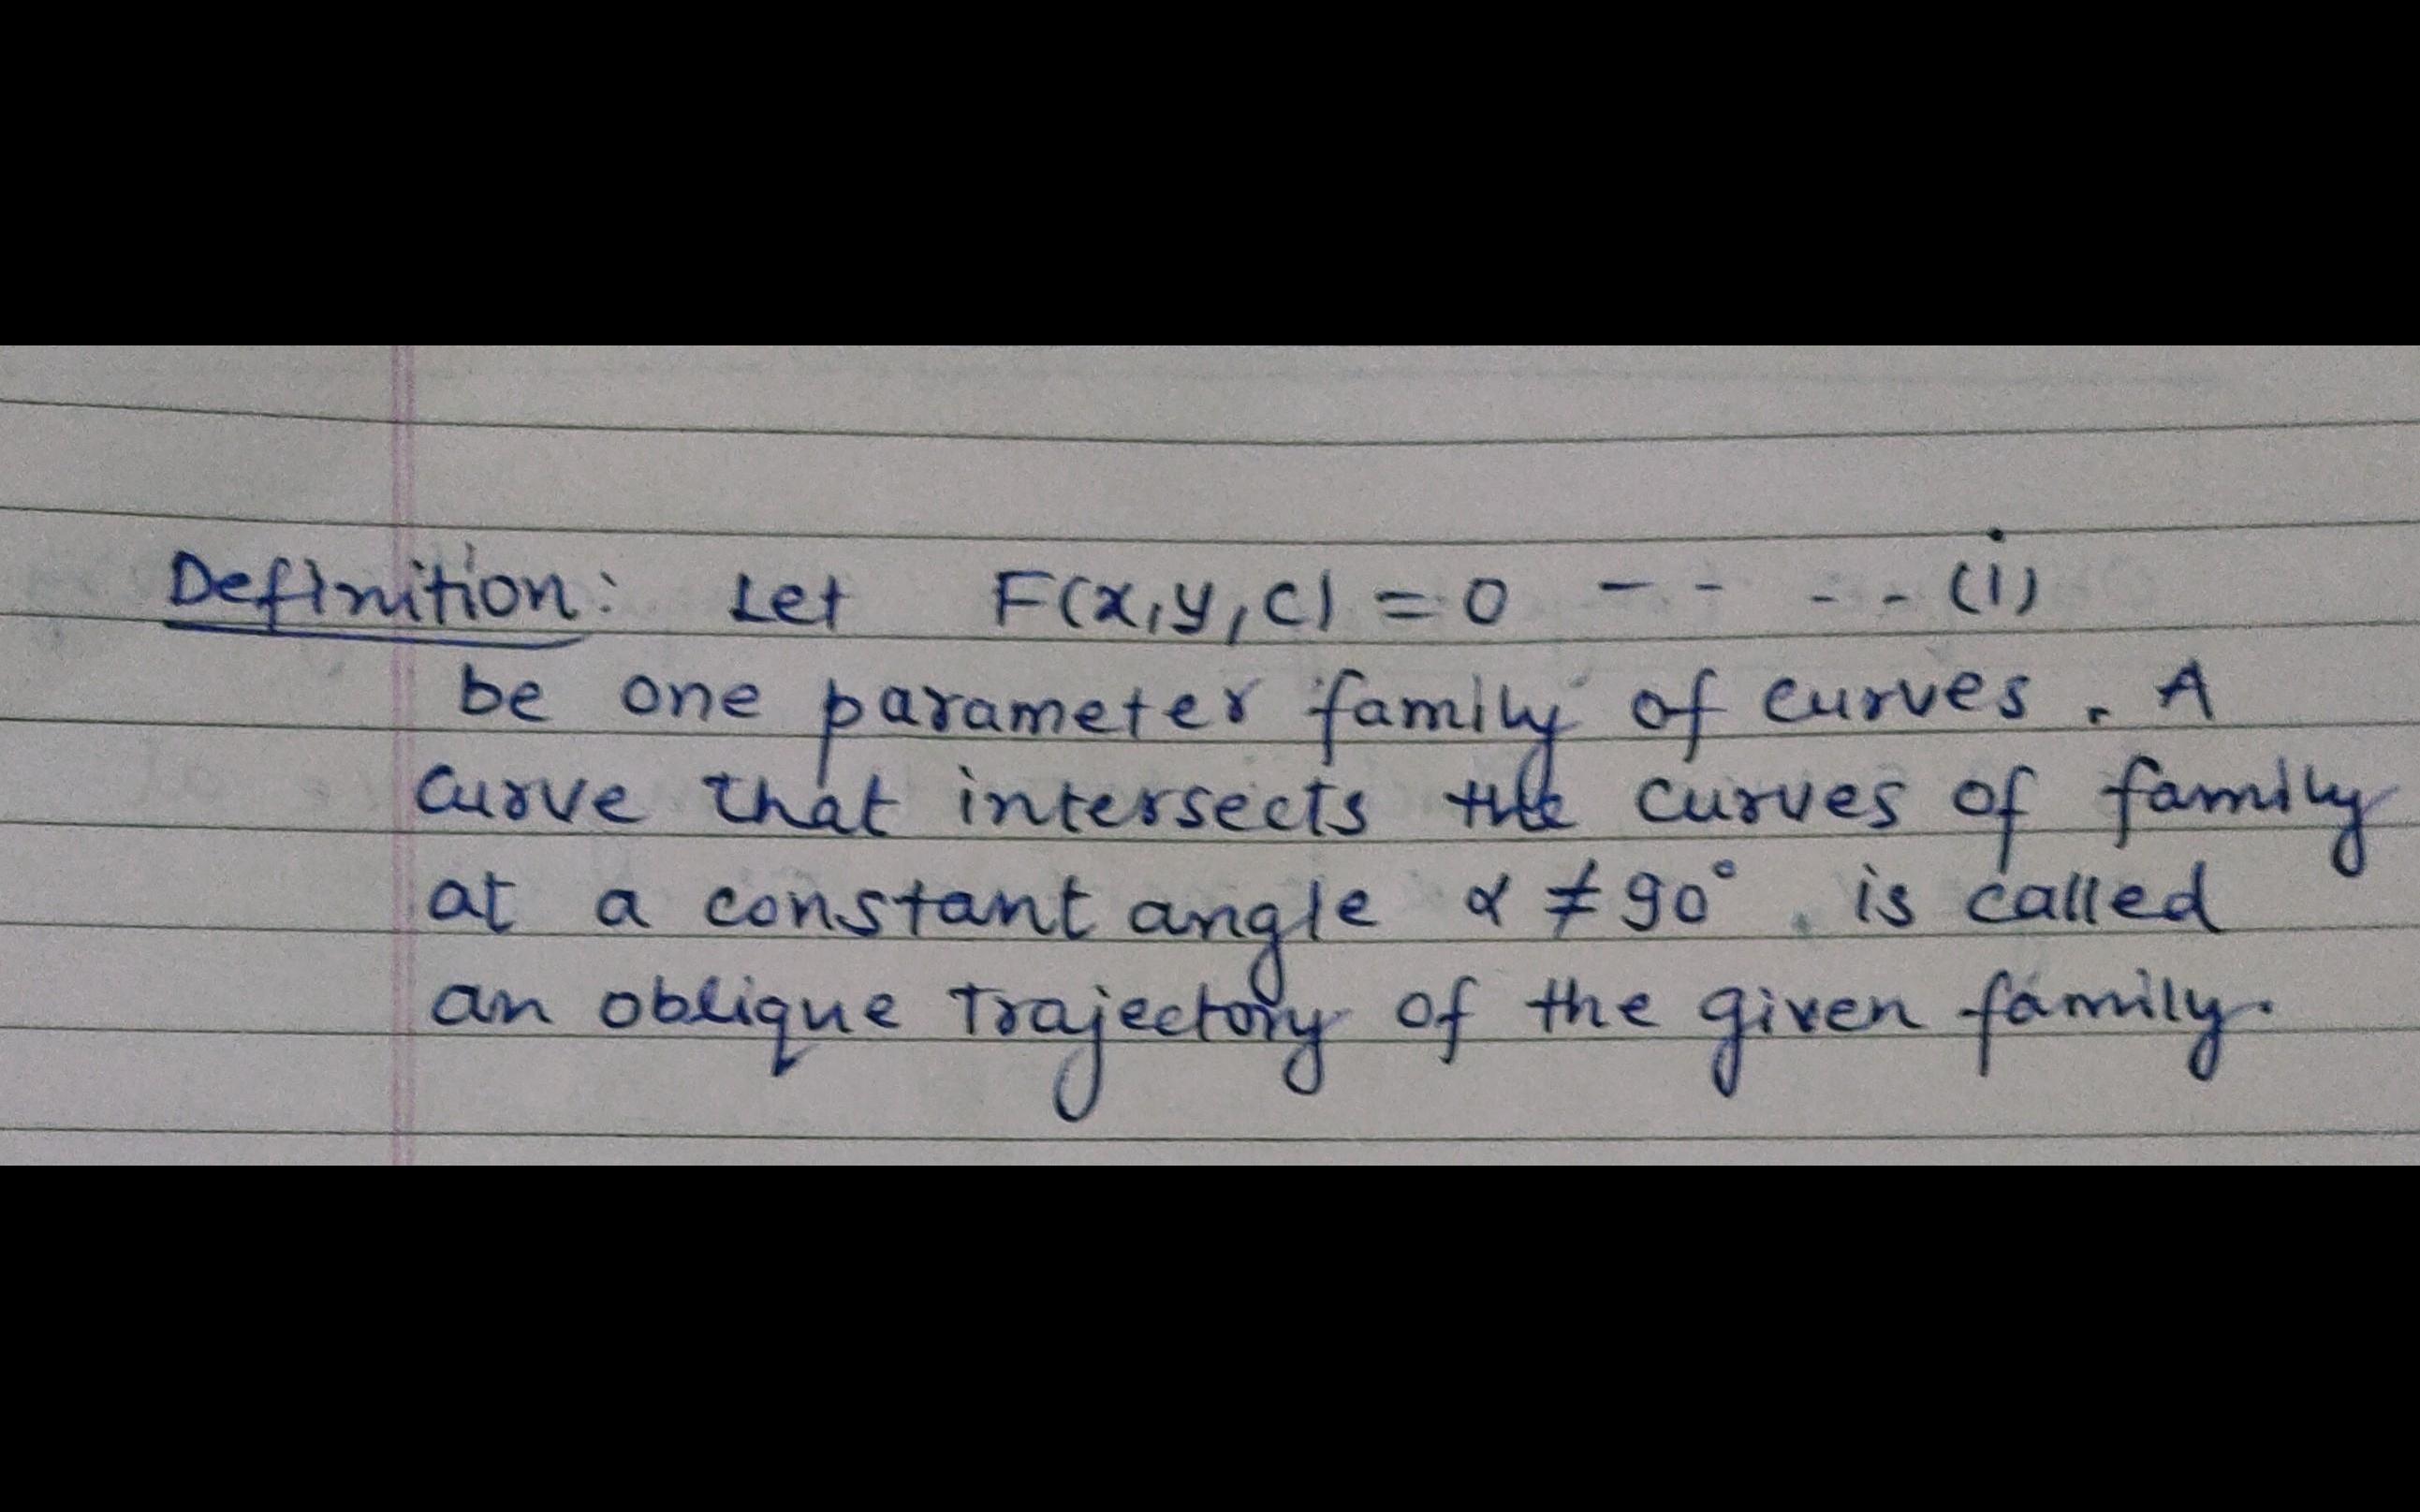 Definition: Let F(x,y,c) = 0 - - - - (i)
be one parameter family of curves. A
curve that intersects the curves of family
at a constant angle α ≠ 90° is called
an oblique trajectory of the given family.